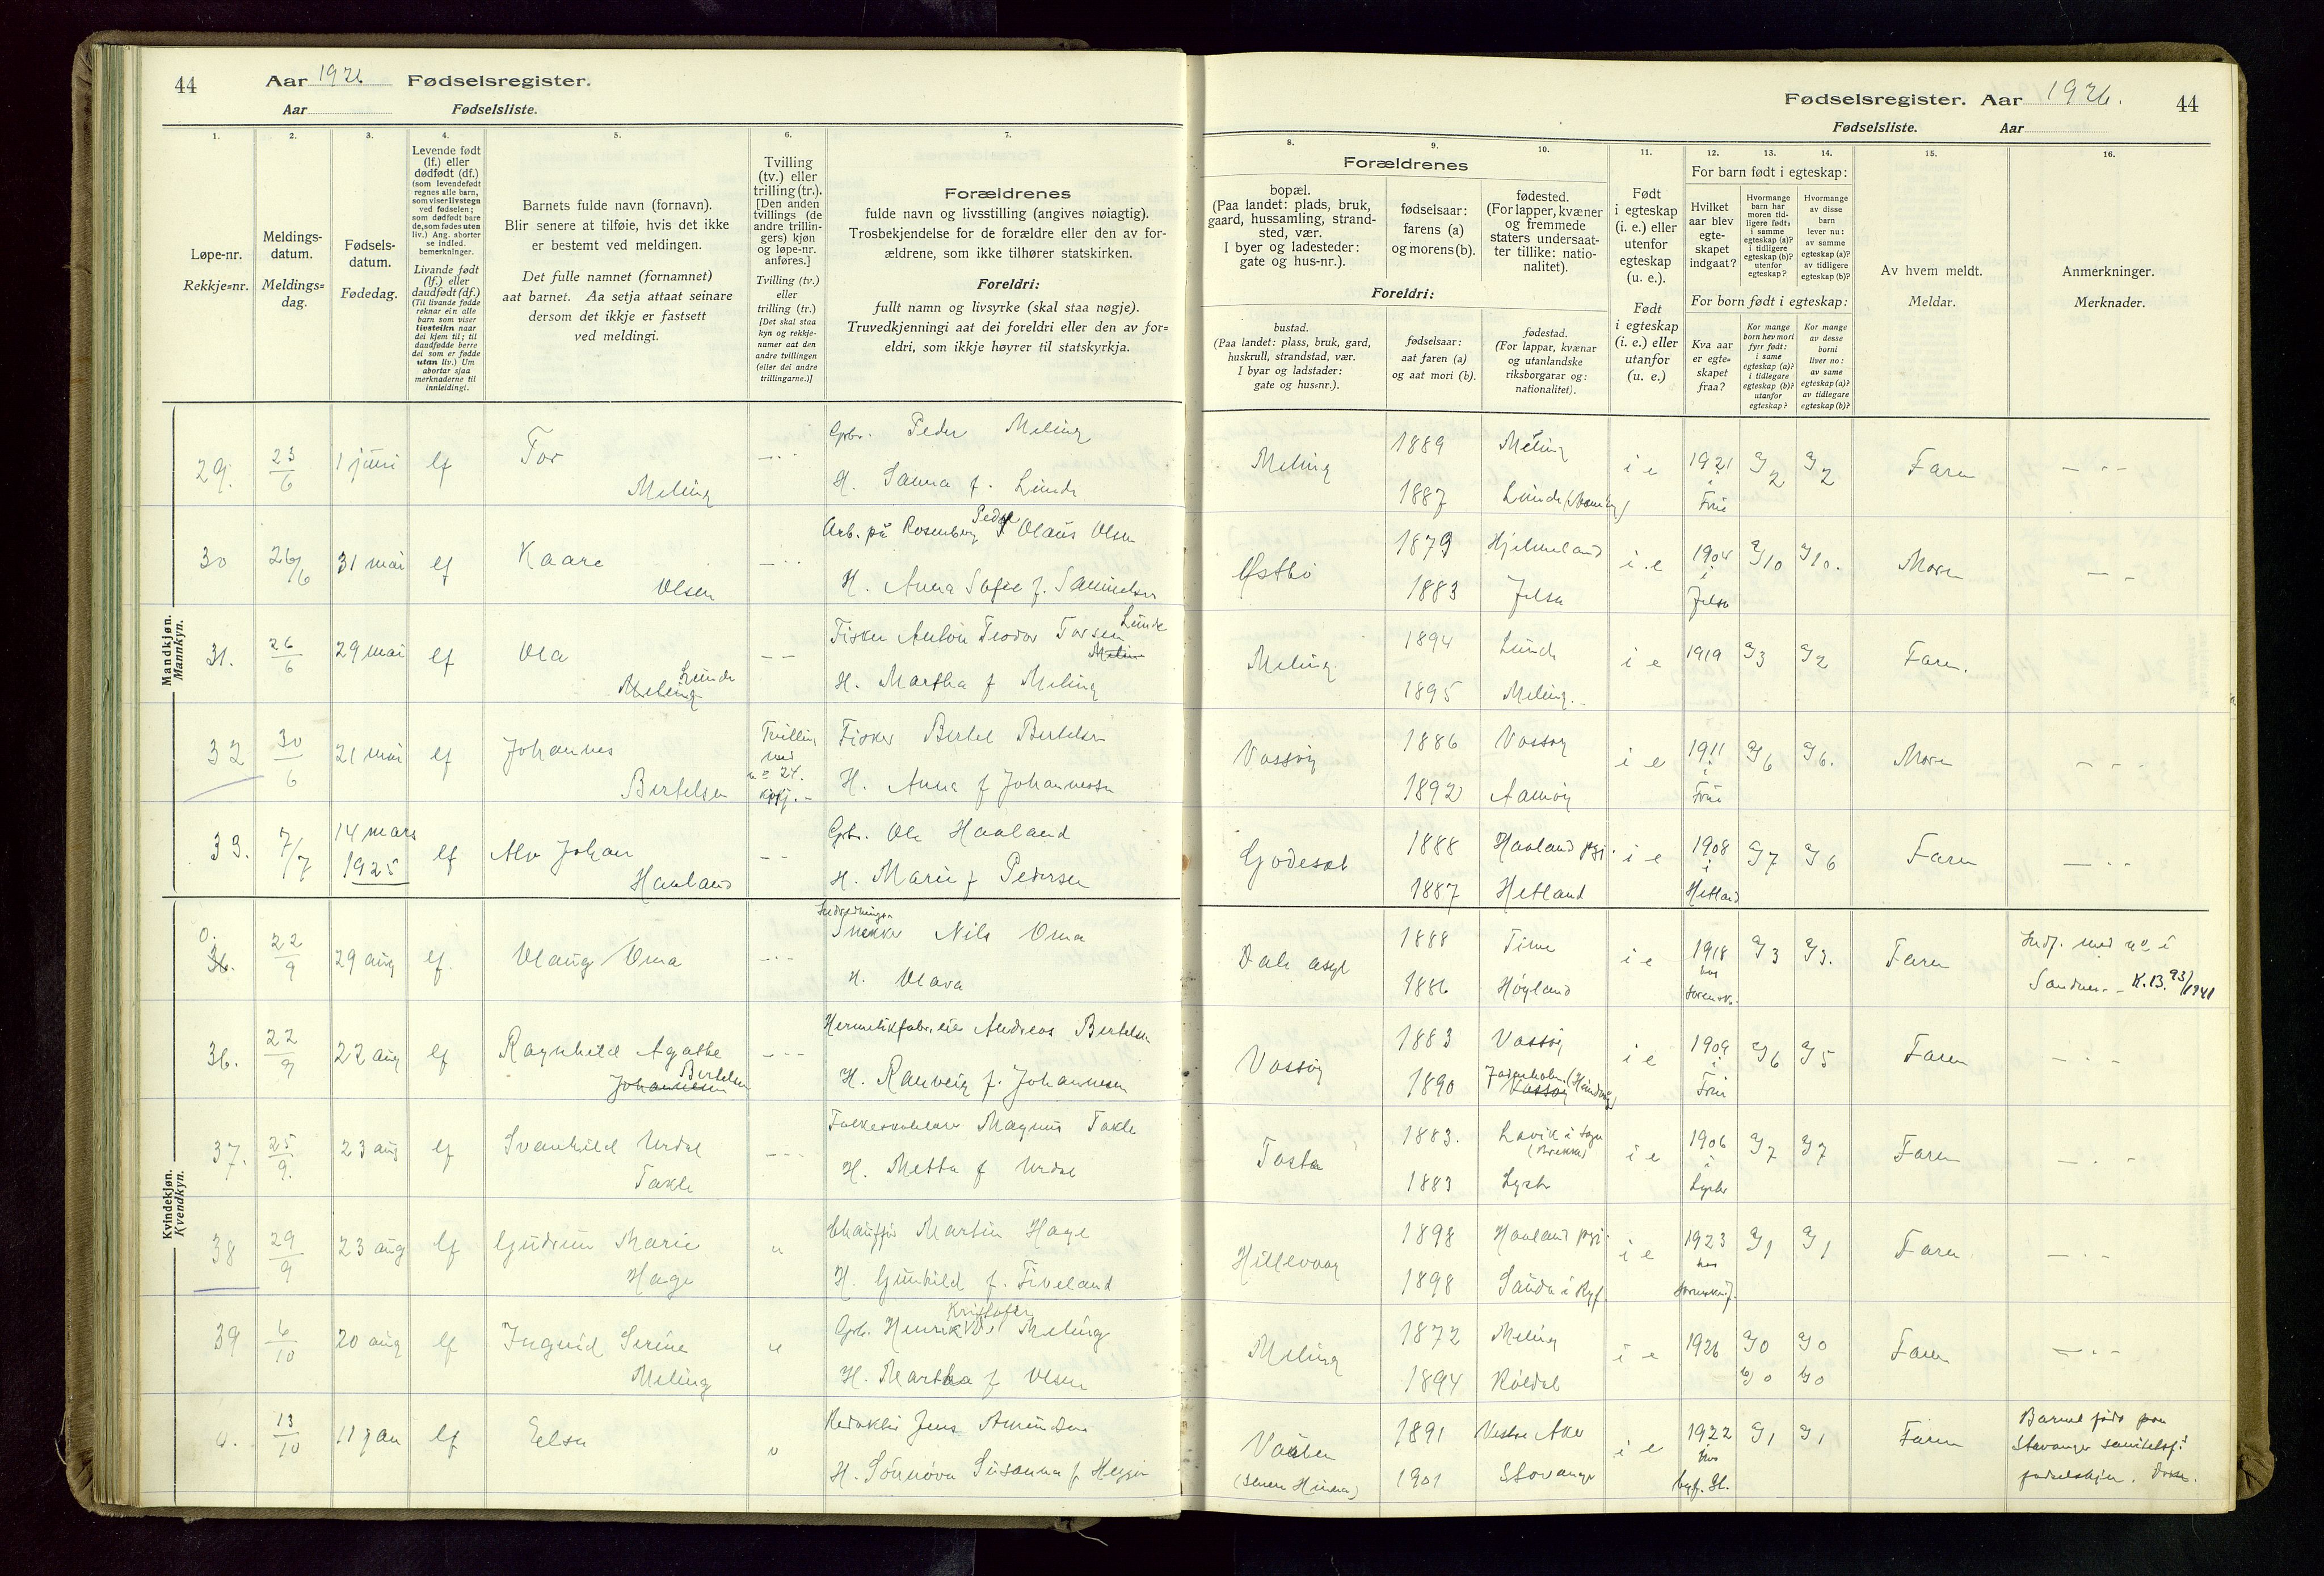 44
Aar 1926 Fødselsregister.
Aar Fødselsliste.
Fødselsregister. Aar 1926.
44
Fødselsliste. Aar
1.
Løpe-nr.
Rekkje-nr.
2.
Meldings-
datum.
Meldings-
dag.
3.
Fødsels-
datum.
Fødedag.
4.
Levende født
(lf.) eller
dødfødt (df.)
(som levendefødt
regnes alle barn,
som viser livstegn
ved fødselen;
som dødfødt bare
de, som fødes uten
liv.) Ang. aborter
se indled.
bemerkninger.
Livande født
(lf.) eller
daudfødt (df.)
(Til livande fødde
reknar ein alle
barn som viser
livsteikn naar
dei kjem til; til
daudfødde berre
dei som er fødde
utan liv.) Um
abortar sjaa
merknaderne til
innleidingi.
5.
Barnets fulde navn (fornavn).
Blir senere at tilføie, hvis det ikke
er bestemt ved meldingen.
Det fulle namnet (fornamnet)
aat barnet. Aa setja attaat seinare
dersom det ikkje er fastsett
ved meldingi.
6.
Tvilling
(tv.) eller
trilling (tr.).
[Den anden
tvillings (de
andre trillin-
gers) kjøn
og løpe-nr.
anføres.]
Tvilling (tv.)
eller
trilling (tr.)
[Det skal staa
kyn og rekkje-
numer aat den
andre tvillingen
(eller dei andre
trillingarne.)]
7.
Forældrenes
fulde navn og livsstilling (angives nøiagtig).
Trosbekjendelse for de forældre eller den av for-
ældrene, som ikke tilhører statskirken.
Foreldri:
fullt namn og livsyrke (skal staa nøgje).
Truvedkjenningi aat dei foreldri eller den av for-
eldri, som ikkje høyrer til statskyrkja.
8.
Forældrenes
bopæl.
(Paa landet: plads, bruk,
gaard, hussamling, strand-
sted, vær.
I byer og ladesteder:
gate og hus-nr.).
Foreldri:
bustad.
(Paa landet: plass, bruk, gard,
huskrull, strandstad, vær.
I byar og ladstader:
gate og hus-nr.).
9.
fødselsaar:
farens (a)
og morens (b).
fødselsaar:
aat faren (a)
og aat mori (b).
10.
fødested.
(For lapper, kvæner
og fremmede
staters undersaat-
ter tillike: natio-
nalitet).
fødestad.
(For lappar, kvænar
og utanlandske
riksborgarar og:
nationalitet).
11.
Født
i egteskap
(i. e.) eller
utenfor
egteskap
(u. e.).
Født
i egteskap
(i. e.) eller
utanfor
(u. e.)
12.
For barn født i egteskap:
Hvilket
aar blev
egte-
skapet
indgaat?
For born født i egteskap:
Kva aar
er egte-
skapet
fraa?
13.
Hvormange
barn har
moren tid-
ligere født:
i samme
egteskap (a)?
i tidligere
egteskap (b)?
utenfor
egteskap?
Kor mange
born hev mori
fyrr født:
i same
egteskap (a)?
i tidlegare
egteskap (b)?
utanfor
egteskap?
14.
Hvormange
av disse
barn
lever nu:
av samme
egteskap (a)?
av tidligere
egteskap (b)?
Kor mange
av desse
borni
liver no:
av same
egteskap (a)?
av tidlegare
egteskap (b)?
15.
Av hvem meldt.
Meldar.
16.
Anmerkninger.
Merknader.
Mandkjøn.
Mannkyn.
29. 23/6 1 juni lf Tor Meling
Gbr. Peder Meling
H. Sanna f. Lunde
Meling 1889 Meling i e 1921 Faren
1887 Lunde
30 26/6 31 mai lf Kaare Olsen
Arb. på Rosenberg Peder Olaus Olsen
H. Anna Sofie f. Samuelsen
Østbø 1879 Hjelmeland i.e 1904 i Jelsa Moren
1883 Jelsa
31. 26/6 29 mai lf Ola Meling Lunde
Fisker Anton Teodor Torsen Lunde
H. Martha f Meling
Meling 1894 Lunde i e 1919 Faren.
1895 Meling.
32 30/6 21 mai lf Johannes Bertelsen
Tvilling med no 24.
Fisker Bertel Bertelsen
H. Anna f Johannessen
Vassøy 1886 Vassøy i e 1911 Moren
1892 Aamøy
33. 7/7 14 mars 1925 lf Alv Johan Haaland
Gbr. Ole Haaland
H. Marie f Pedersen
Godeset 1888 Haaland pgj. i e 1908 i Hetland Faren
1887 Hetland
Kvindekjøn.
Kvendkyn.
22/9 29 aug lf. Olaug Oma
Snekker Nils Oma
H. Olava
Dale asyl 1888 Time i e 1918 hos Sorensk. Faren
1886 Høyland
Indf. med no i
Sandnes. K.B. 93/1941
36. 22/9 22 aug lf Ragnhild Agathe Johannesen Bertelsen
Hermetikfabr.eier Andreas Bertelsen
H. Ranveig f. Johannesen
Vassøy 1883 Vassøy i e 1909 Faren
1890 Vassøy
37. 25/9. 23 aug lf Svanhild Urdal Takle
Folkeskolelærer Magnus Takle
H. Metta f Urdal
Tasta 1883. Lavik i Sogn (Brekke) i e 1906 i Luster Faren
1883 Lyster
38 29/9 23 aug lf Gudrun Marie Hage
Chauffør Martin Hage
H. Gunhild f. Tiveland
Hillevaag 1898 Haaland pgj. i e 1923 hos Sorenskriv. Faren
1898 Sauda i Ryf.
39 6/10 20 aug lf Ingrid Serine Meling
Gbr. Henrik Kristofer Meling
H. Martha f Olsen
Meling 1872 Meling i e 1926 Faren
1894 Røldal
13/10 11 jan lf Eelsa
Redaktør Jens Amundsen
H. Sønnøva Susanna f
Vaulen 1891 Vestre Aker i e 1922 hos byf. St. Faren
(senere Hinna) 1901 Stavanger
Barnet født paa
Stavanger sanitetsf.s
fødselshjem.